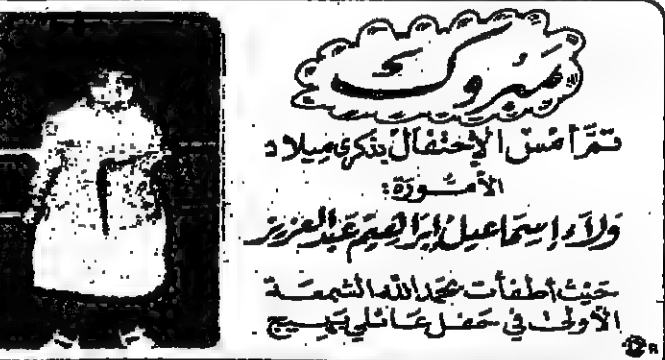 مبروك
تمّ أمس الإحتفال بذكرى ميلاد
الأمّورة:
ولاء إسماعيل إبراهيم عبد العزيز
حيث أطفأت بحمد الله الشمعة
الأولى في حفل عائلي بهيج